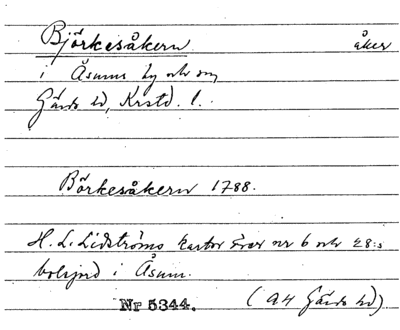 Björkesåkern åker
i Åsums by och sn,
Gärds hd, Krstd. l.
Börkesåkern 1788.
H. L. Lidströms kartor över nr 6 och 28:s
bolsjord i Åsum.
Nr 5344. (A4 Gärds hd)